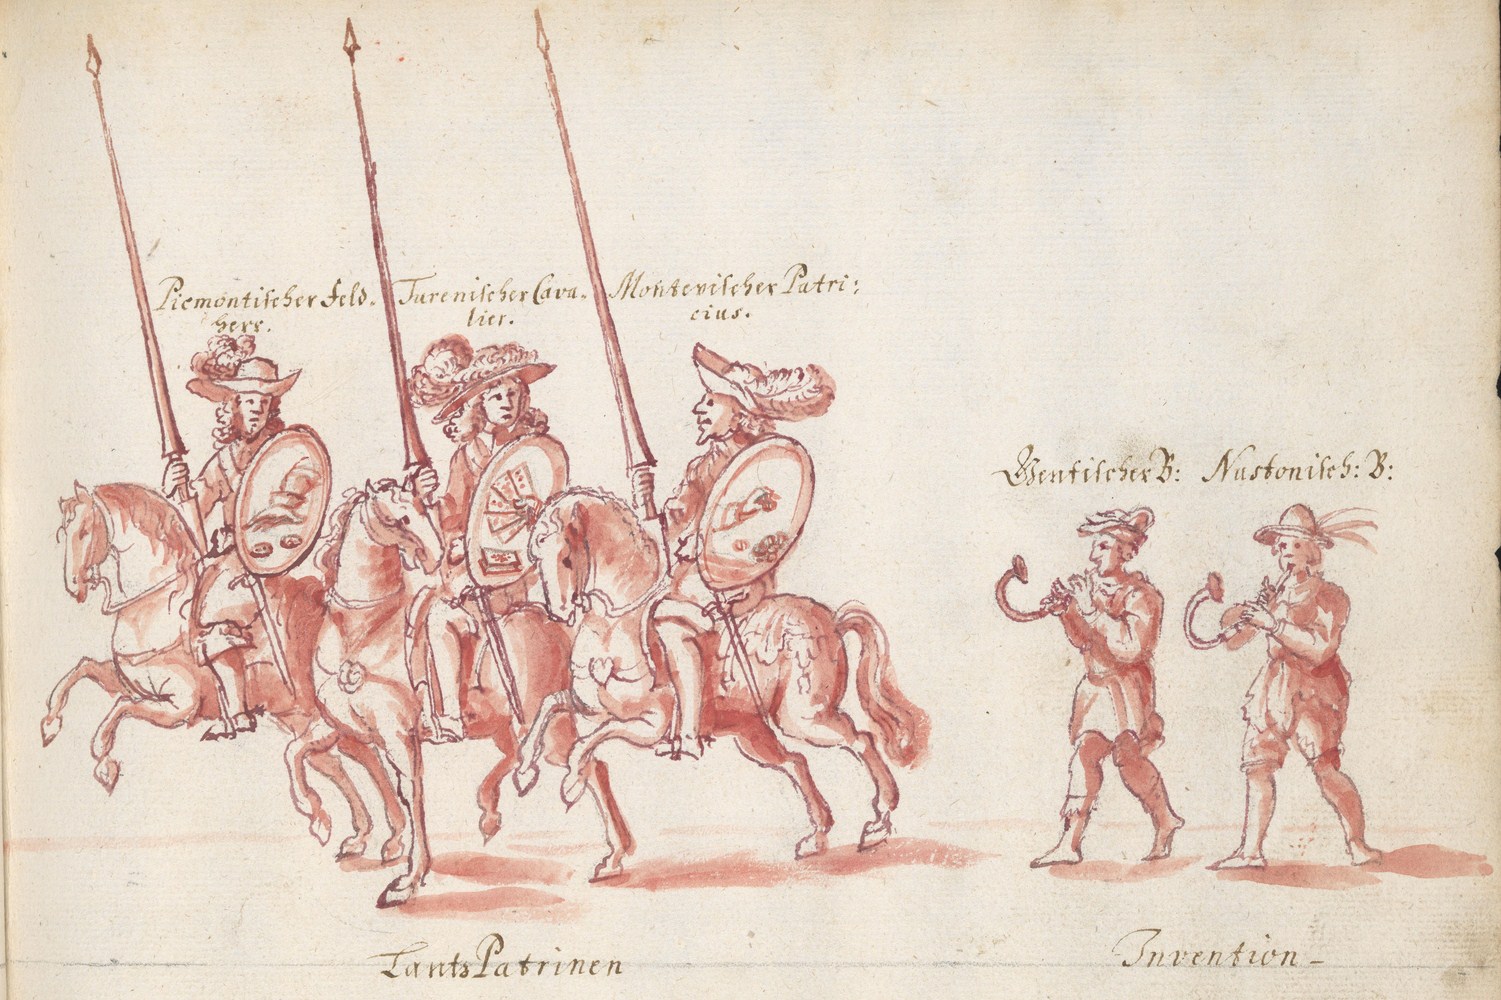 Piemontischer Feld-
herr.
Turenischer Cava-
lier.
Montevischer Patri:
cius.
Gentischer B:
Nastonisch: B:
Lants Patrinen
Invention -